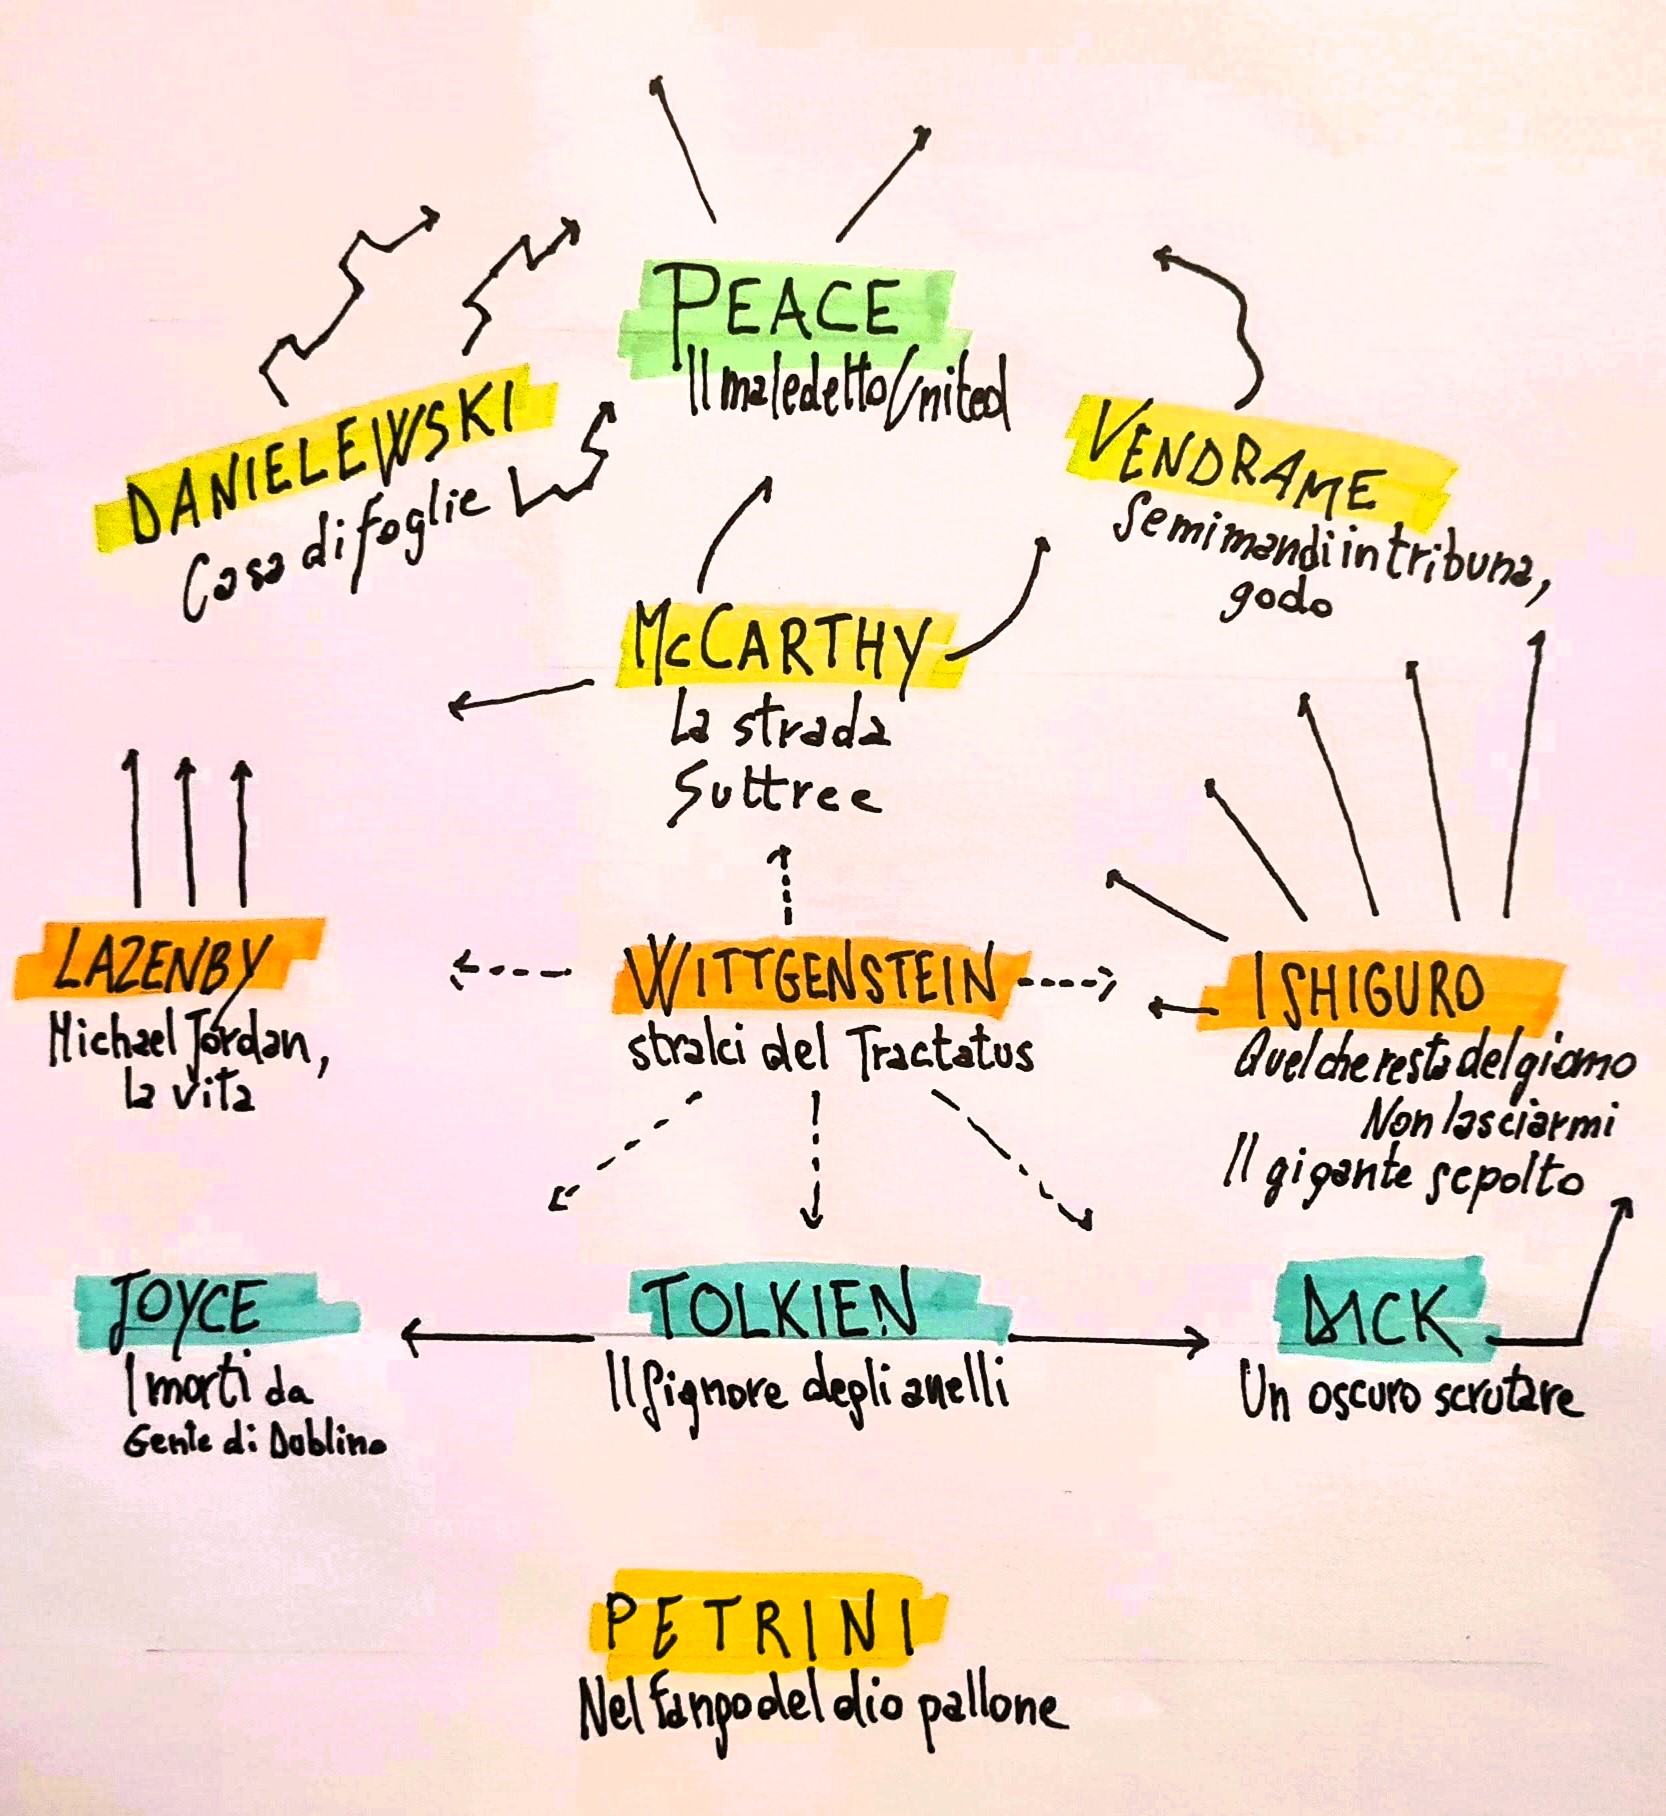 PEACE
Il maledetto United
DANIELEWSKI
Casa di foglie
VENDRAME
Se mi mandi in tribuna,
godo
McCARTHY
La strada
Suttree
LAZENBY
Michael Jordan,
la vita
WITTGENSTEIN
stralci del Tractatus
ISHIGURO
Quel che resta del giorno
Non lasciarmi
Il gigante sepolto
JOYCE
I morti da
Gente di Dublino
TOLKIEN
Il Signore degli anelli
DICK
Un oscuro scrutare
PETRINI
Nel fango del dio pallone